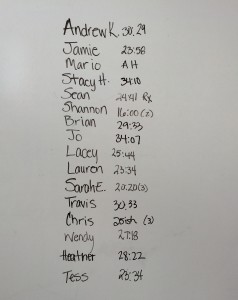 Andrew K. 30:29
Jamie 23:58
Mario AH
Stacy H. 34:10
Sean 24:41 Rx
Shannon 16:00 (2)
Brian 29:33
Jo 34:07
Lacey 25:44
Lauren 23:34
Sarah E. 20:20 (3)
Travis 30:33
Chris (3)
Wendy 27:13
Heather 28:22
Tess 23:34